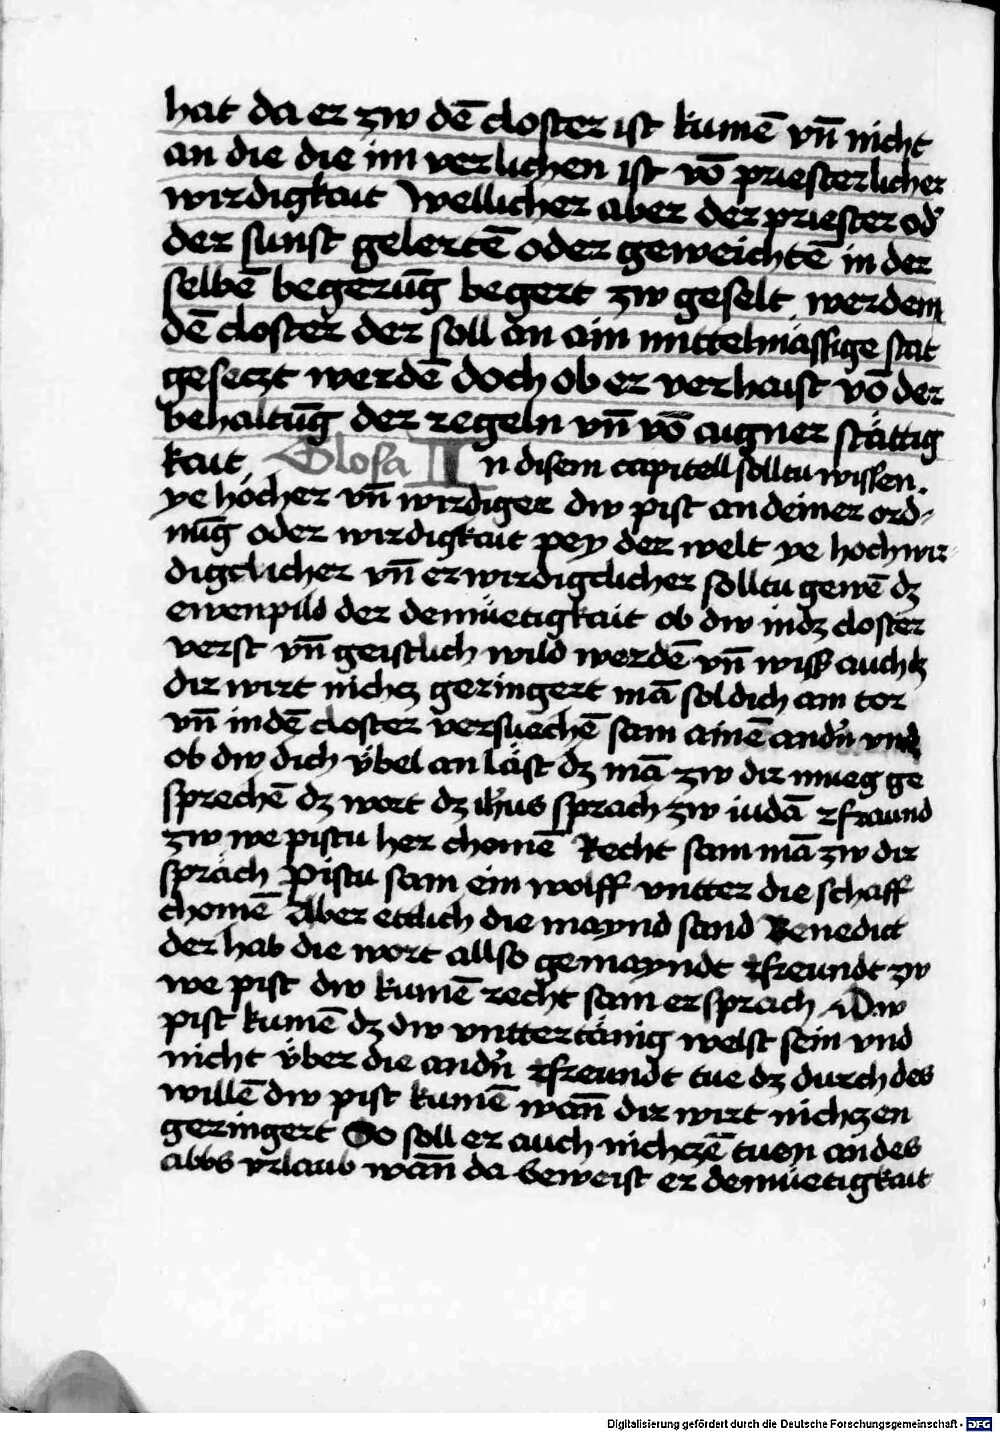 hat da er zw dē closter ist kumē vn̄ nicht
an die die im verlichen ist vō priesterlicher
wirdigkait Wellicher aber der priester od̾
der sunst gelertē oder geweichtē in der
selbē begerūg begert zw geselt werdem
dē closter der soll an ain mittelmässige stat
gesetzt werdē doch ob er verhaist vō der
behaltūg der regeln vn̄ vō aigner stättig
kait Glosa In disem capitell solltu wissen.
ye höcher vn̄ wirdiger dw pist an deiner ord-
nūg oder wirdigkait pey der welt ye hochwir-
digclicher vn̄ erwirdigclicher solltu gewē dz
ewenpild der demüetigkait ob dw in dz closter
verst vn̄ geistlich wild werdē vn̄ wiss auch dz
dir wirt nichcz geringert mā sol dich am tor
vn̄ in dē closter versuechē sam ainē andn̄ vnd
ob dw dich vbel an läst dz mā zw dir mueg ge
sprechē dz wort dz ih̄us sprach zw iudā freund
zw we pistu her chomē Recht sam mā zw dir
spräch Pistu sam ein wolff vntter die schaff
chomē Aber ettlich die maynd sand Benedict
der hab die wort allso gemayndt freundt zw
we pist dw kumē recht sam er sprach Dw
pist kumē dz dw vnttertänig welst sein vnd
nicht vber die andn̄ freundt tue dz durch des
willē dw pist kumē wan̄ dir wirt nichczen
geringert So soll er auch nichczē tuen an des
abbs vrlaub wan̄ da beweist er demüetigkait
Digitalisierung gefördert durch die Deutsche Forschungsgemeinschaft - DFG